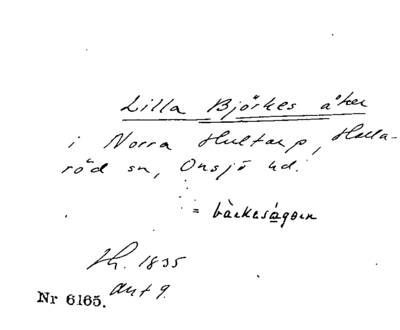 Lilla Björkes åker
i Norra Hultarp, Halla-
röd sn, Onsjö hd.
= backesågoen
Lh. 1835
akt 9.
Nr 6165.